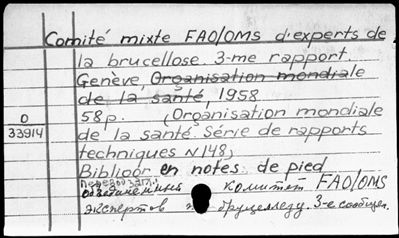 Comité mixte FAO/OMS d'experts de
la brucellose. 3-me rapport.
Genève, Organisation mondiale
de la santé, 1958
58p. (Organisation mondiale
de la santé. Série de rapports
techniques N 148)
Bibliogr en notes de pied
O
33914
Перевод загл.:
Объединенный комитет FAO/OMS
экспертов по бруцеллезу. 3-е сообщен.